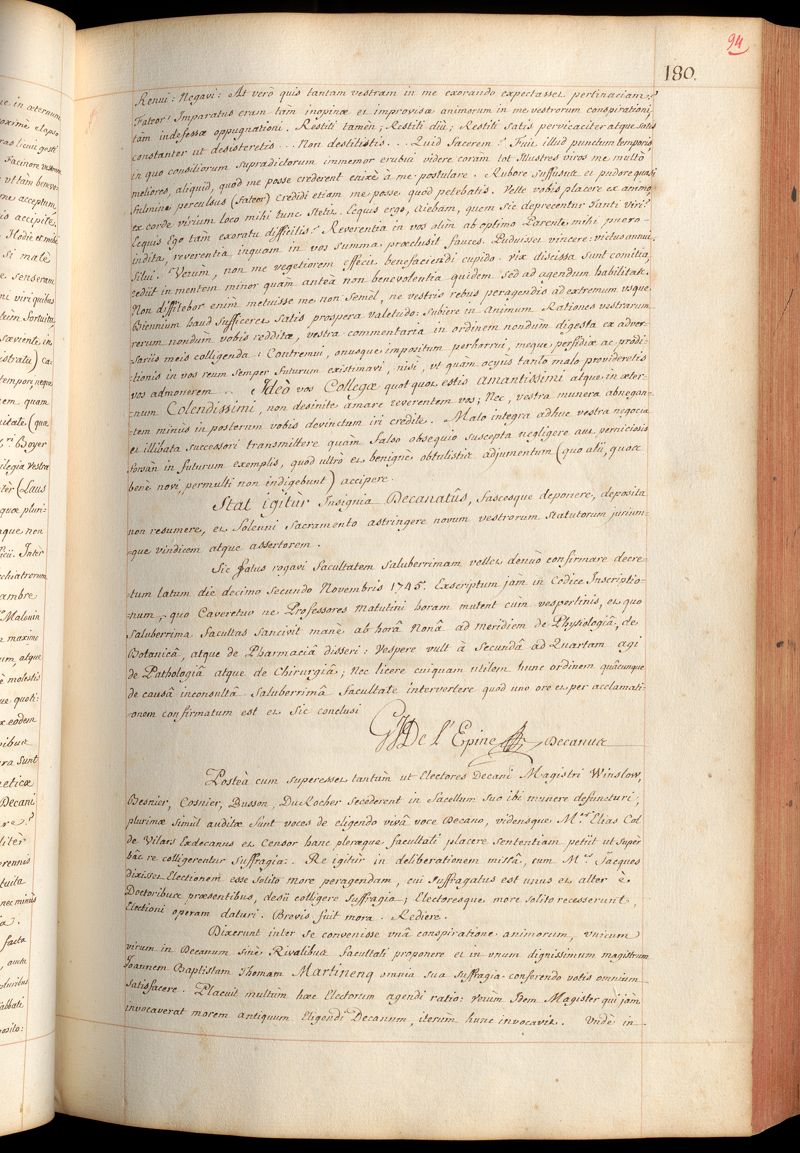 94
180.
Renui: Negavi: At verò quis tantam vestram in me exorando expectasset pertinaciam?
Fateor! Imparatus eram tàm inopinæ et improvisæ animorum in me vestrorum conspirationi,
tàm indefossæ oppugnationi. Restiti tamèn; Restiti diù; Restiti satis pervicaciter atque satis
constanter ut desisteretis... Non destitistis... Quid facerem? Fuit illud punctum temporis,
in quo consiliorum supradictorum immemor erubui videre coram tot Illustres viros me multò
meliores, aliquid, quod me posse crederent enixè à me postulare. Rubore suffusus et pudore quasi
fulmine perculsus (fateor) credidi etiam me posse quod petebatis. Velle vobis placere ex animo,
ex corde virium loco mihi tunc stetit. Ecquis ergo, aiebam, quem sic deprecentur tanti viri?
Ecquis Ego tàm exoratu difficilis? Reverentia in vos olim ab optimo Parente mihi puero
indita, reverentia inquam in vos summa præclusit fauces. Puduisset vincere: victus annui.
Silui. Verùm, non me vegetiorem effecit benefaciendi cupido. vix discissa sunt comitia,
cecidit in mentem minor quam anteà non benevolentia quidem sed ad agendum habilitas.
Non diffitebor enim metuisse me non semel, ne vestris rebus peragendis ad extremum usque
Biennium haud sufficeret satis prospera valetudo: subiere in animum Rationes vestrarum
rerum nondum vobis redditæ, vestra commentaria in ordinem nondum digesta ex adver-
sariis meis colligenda: Contremui, onusque impositum perhorrui, meque perfidiæ ac prodi-
tionis in vos reum semper futurum existimavi, nisi, ut quàm ocyùs tanto malo provideretis
vos admonerem... Adeò vos Collegæ quot quot estis amantissimi atque in æter-
num Colendissimi, non desinite amare reverentem vos; Nec, vestra munera abnegan-
tem minùs in posterum vobis devinctum iri credite. Malo integra adhuc vestra negotia
et illibata successori transmittere quàm falso obsequio suscepta negligere aut pernicioso
forsàn in futurum exemplis, quod ultrò et benignè obtulistis adjumentum (quo alii, quos
benè novi, permulti non indigebunt) accipere.
Stat igitùr Insignia Decanatûs, fascesque deponere, deposita
non resumere, et Solemni Sacramento astringere novum vestrorum Statutorum jurium-
que vindicem atque assertorem.
Sic fatus rogavi Facultatem Saluberrimam vellet denuò confirmare decre-
tum latum die decimo secundo Novembris 1745. Exscriptum jam in Codice Inscriptio-
num, quo Caveretur ne Professores Matutini horam mutent cùm vespertinis, et quo
Saluberrima Facultas Sancivit manè ab horâ Nonâ ad meridiem de Physiologiâ, de
Botanicâ, atque de Pharmaciâ disseri. Vespere vult à Secundâ ad Quartam agi
de Pathologiâ atque de Chirurgiâ; Nec licere cuiquam utilem hunc ordinem quâcumque
de causâ inconsultâ Saluberrimâ Facultate intervertere quod uno ore et per acclamati-
onem confirmatum est et Sic conclusi
GJ De l'Epine Decanus
Posteà cum superesset tantùm ut Electores Decani Magistri Winslow,
Besnier, Cosnier, Busson, DuRocher secederent in Sacellum suo ibi munere defuncturi,
plurimæ simùl auditæ sunt voces de eligendo vivâ voce Decano, vidensque M.er Elias Col
de Vilars Exdecanus et Censor hanc plerisque facultati placere sententiam petiit ut supèr
hâc re colligerentur suffragia. Re igitùr in deliberationem missâ, cum M.er Jacques
dixisset Electionem esse Solito more peragendam, cui suffragatus est unus et alter è
Doctoribus præsentibus, desii colligere suffragia; Electoresque more solito recesserunt,
Electioni operam daturi. Brevis fuit mora. Rediere.
Dixerunt inter se convenisse unâ conspiratione animorum, unicum
virum in Decanum sinè Rivalibus facultati proponere et in unum dignissimum magistrum
Joannem Baptistam Thomam Martinenq omnia sua suffragia conferendo votis omnium
satisfacere. Placuit multum hæc Electorum agendi ratio: verùm Idem Magister qui jàm
invocaverat morem antiquum Eligendi Decanum, iterùm hunc invocavit. Undè in-